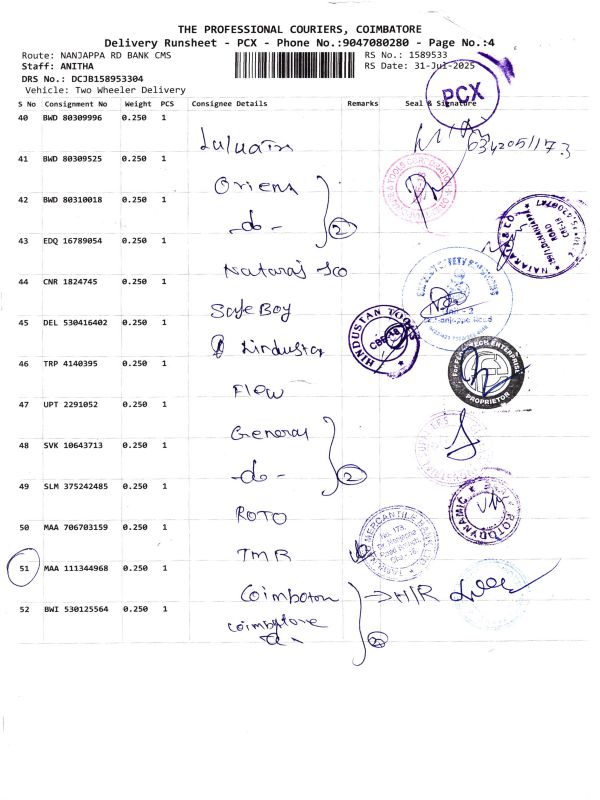 THE PROFESSIONAL COURIERS, COIMBATORE
Delivery Runsheet - PCX - Phone No.:9047080280 - Page No.:4
Route: NANJAPPA RD BANK CMS
RS No.: 1589533
Staff: ANITHA
RS Date: 31-Jul-2025
DRS No.: DCJB158953304
Vehicle: Two Wheeler Delivery
PCX
S No Consignment No Weight PCS Consignee Details Remarks Seal & Signature
40 BWD 80309996 0.250 1
41 BWD 80309525 0.250 1
Oriens
42 BWD 80310018 0.250 1
-do- 2
43 EDQ 16789054 0.250 1
Nataraj &co
NATARAJ & CO
44 CNR 1824745 0.250 1
Safe Boy
45 DEL 530416402 0.250 1
Hindustan
HINDUSTAN
46 TRP 4140395 0.250 1
Flow
ENTERPRISE
PROPRIETOR
47 UPT 2291052 0.250 1
General
48 SVK 10643713 0.250 1
-do- 2
49 SLM 375242485 0.250 1
ROTO
ROTODYNAMIC
50 MAA 706703159 0.250 1
TMB
MERCANTILE BANK LTD
51 MAA 111344968 0.250 1
Coimbatore → H/R
52 BWI 530125564 0.250 1
Coimbatore